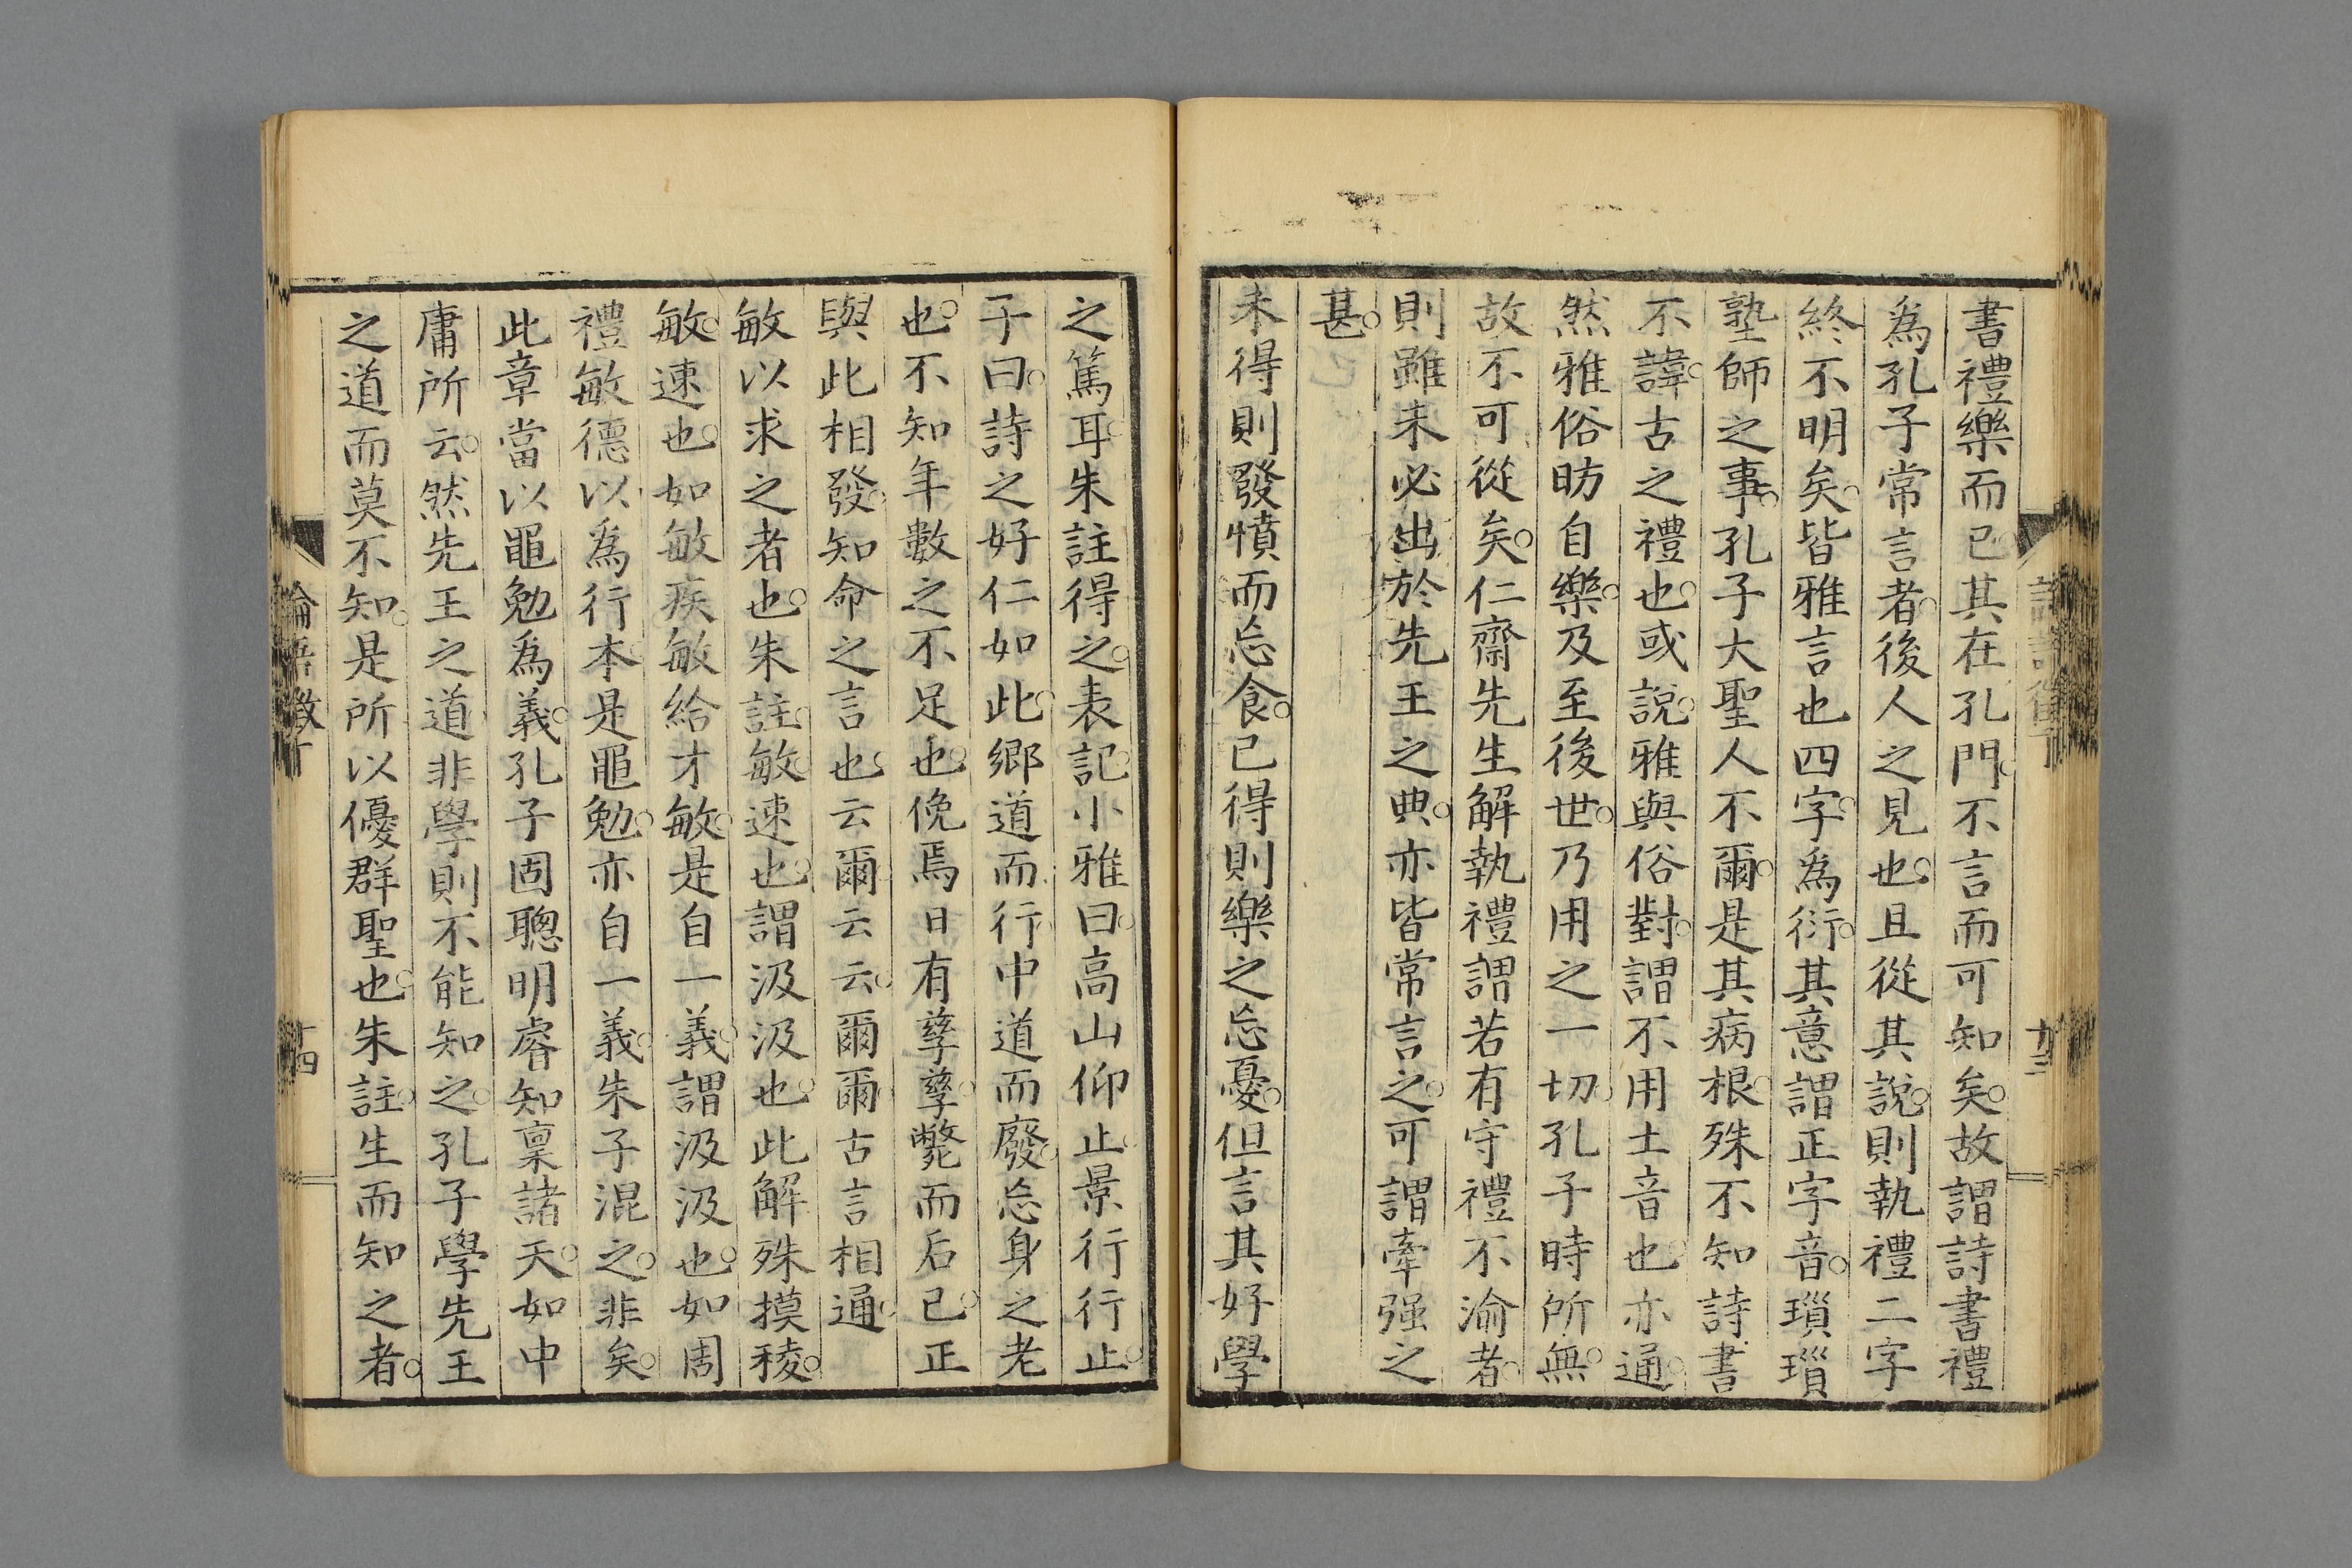 書禮樂而已其在孔門不言而可知矣故謂詩書禮
爲孔子常言者後人之見也且從其說則執禮二字
終不明矣皆雅言也四字爲衍其意謂正字音瑣瑣
塾師之事孔子大聖人不爾是其病根殊不知詩書
不諱古之禮也或說雅與俗對謂不用土音也亦通
然雅俗昉自樂及至後世乃用之一切孔子時所無
故不可從矣仁齋先生解執禮謂若有守禮不渝者
則雖未必出於先王之典亦皆常言之可謂牽强之
甚
未得則發憤而忘食已得則樂之忘憂但言其好學
十三
之篤耳朱註得之表記小雅曰高山仰止景行行止
子曰詩之好仁如此鄉道而行中道而廢忘身之老
也不知年數之不足也俛焉日有孳孳斃而后已正
與此相發知命之言也云爾云云爾爾古言相通
敏以求之者也朱註敏速也謂汲汲也此解殊摸稜
敏速也如敏疾敏給才敏是自一義謂汲汲也如周
禮敏德以爲行本是黽勉亦自一義朱子混之非矣
此章當以黽勉爲義孔子固聰明睿知稟諸天如中
庸所云然先王之道非學則不能知之孔子學先王
之道而莫不知是所以優群聖也朱註生而知之者
論語徵丁
十四